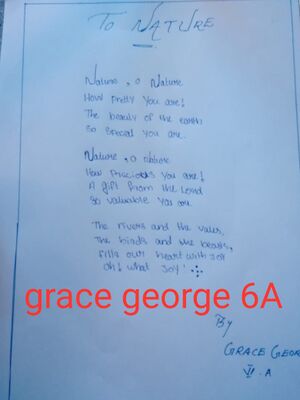 To NATURE
Nature, o Nature
How pretty you are!
The beauty of the earth
So special you are.
Nature, o Nature
How precious you are!
A gift from the Lord
So valuable you are.
The rivers and the vales,
The birds and the beasts,
Fills our heart with joy
Oh! what joy!
grace george 6A
By
GRACE GEOR
VI - A